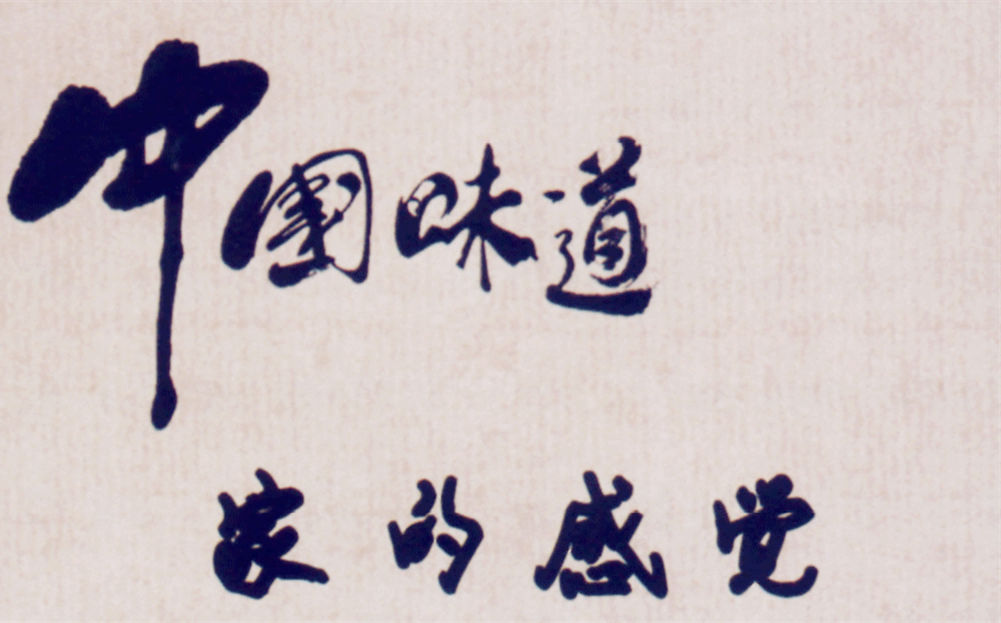 中国味道
家的感觉